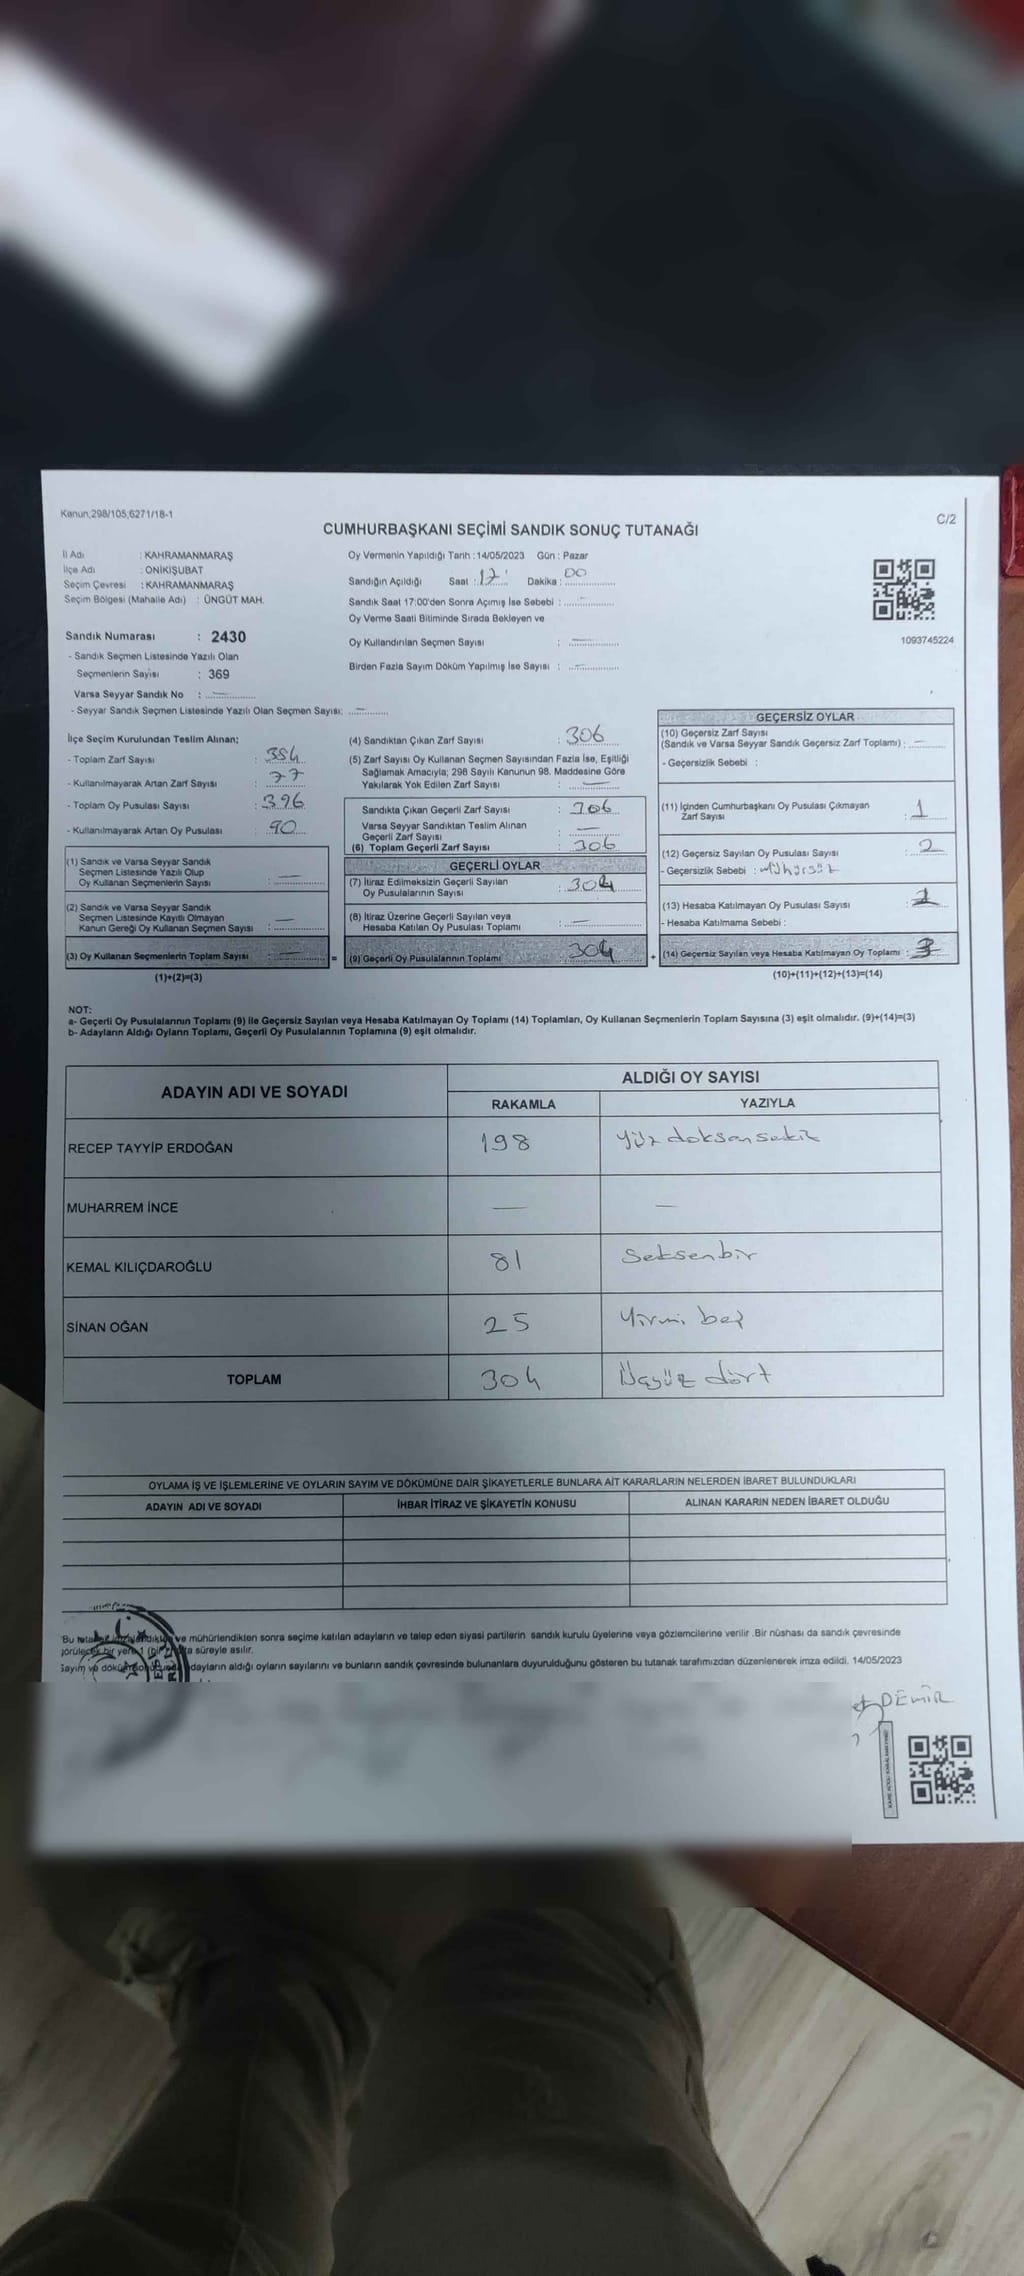 Kanun,298/105,6271/18-1
C/2
CUMHURBAŞKANI SEÇİMİ SANDIK SONUÇ TUTANAĞI
İl Adı : KAHRAMANMARAŞ
İlçe Adı : ONİKİŞUBAT
Seçim Çevresi : KAHRAMANMARAŞ
Seçim Bölgesi (Mahalle Adı) : ÜNGÜT MAH.
Sandık Numarası : 2430
- Sandık Seçmen Listesinde Yazılı Olan
Seçmenlerin Sayısı : 369
Varsa Seyyar Sandık No : —
- Seyyar Sandık Seçmen Listesinde Yazılı Olan Seçmen Sayısı: —
Oy Vermenin Yapıldığı Tarih : 14/05/2023 Gün : Pazar
Sandığın Açıldığı Saat : 17 Dakika : 00
Sandık Saat 17:00'den Sonra Açımış İse Sebebi : —
Oy Verme Saati Bitiminde Sırada Bekleyen ve
Oy Kullandırılan Seçmen Sayısı : —
Birden Fazla Sayım Döküm Yapılmış İse Sayısı : —
1093745224
İlçe Seçim Kurulundan Teslim Alınan;
- Toplam Zarf Sayısı : 384
- Kullanılmayarak Artan Zarf Sayısı : 77
- Toplam Oy Pusulası Sayısı : 396
- Kullanılmayarak Artan Oy Pusulası : 90
(1) Sandık ve Varsa Seyyar Sandık
Seçmen Listesinde Yazılı Olup
Oy Kullanan Seçmenlerin Sayısı : —
(2) Sandık ve Varsa Seyyar Sandık
Seçmen Listesinde Kayıtlı Olmayan
Kanun Gereği Oy Kullanan Seçmen Sayısı : —
(3) Oy Kullanan Seçmenlerin Toplam Sayısı : —
(1)+(2)=(3)
(4) Sandıktan Çıkan Zarf Sayısı : 306
(5) Zarf Sayısı Oy Kullanan Seçmen Sayısından Fazla İse, Eşitliği
Sağlamak Amacıyla; 298 Sayılı Kanunun 98. Maddesine Göre
Yakılarak Yok Edilen Zarf Sayısı : —
Sandıkta Çıkan Geçerli Zarf Sayısı : 306
Varsa Seyyar Sandıktan Teslim Alınan
Geçerli Zarf Sayısı : —
(6) Toplam Geçerli Zarf Sayısı : 306
GEÇERLİ OYLAR
(7) İtiraz Edilmeksizin Geçerli Sayılan
Oy Pusulalarının Sayısı : 304
(8) İtiraz Üzerine Geçerli Sayılan veya
Hesaba Katılan Oy Pusulası Toplamı : —
(9) Geçerli Oy Pusulalarının Toplamı 304
GEÇERSİZ OYLAR
(10) Geçersiz Zarf Sayısı
(Sandık ve Varsa Seyyar Sandık Geçersiz Zarf Toplamı) : —
- Geçersizlik Sebebi :
(11) İçinden Cumhurbaşkanı Oy Pusulası Çıkmayan
Zarf Sayısı : 1
(12) Geçersiz Sayılan Oy Pusulası Sayısı : 2
- Geçersizlik Sebebi : Mühürsüz
(13) Hesaba Katılmayan Oy Pusulası Sayısı :
- Hesaba Katılmama Sebebi :
(14) Geçersiz Sayılan veya Hesaba Katılmayan Oy Toplamı : 3
(10)+(11)+(12)+(13)=(14)
NOT:
a- Geçerli Oy Pusulalarının Toplamı (9) ile Geçersiz Sayılan veya Hesaba Katılmayan Oy Toplamı (14) Toplamları, Oy Kullanan Seçmenlerin Toplam Sayısına (3) eşit olmalıdır. (9)+(14)=(3)
b- Adayların Aldığı Oyların Toplamı, Geçerli Oy Pusulalarının Toplamına (9) eşit olmalıdır.
ADAYIN ADI VE SOYADI ALDIĞI OY SAYISI
RAKAMLA YAZIYLA
RECEP TAYYİP ERDOĞAN 198 Yüz doksan sekiz
MUHARREM İNCE — —
KEMAL KILIÇDAROĞLU 81 Seksenbir
SİNAN OĞAN 25 Yirmi beş
TOPLAM 304 Üçyüz dört
OYLAMA İŞ VE İŞLEMLERİNE VE OYLARIN SAYIM VE DÖKÜMÜNE DAİR ŞİKAYETLERLE BUNLARA AİT KARARLARIN NELERDEN İBARET BULUNDUKLARI
ADAYIN ADI VE SOYADI İHBAR İTİRAZ VE ŞİKAYETİN KONUSU ALINAN KARARIN NEDEN İBARET OLDUĞU
Bu ve mühürlendikten sonra seçime katılan adayların ve talep eden siyasi partilerin sandık kurulu üyelerine veya gözlemcilerine verilir .Bir nüshası da sandık çevresinde
bir yere 1 süreyle asılır.
Sayım ve adayların aldığı oyların sayılarını ve bunların sandık çevresinde bulunanlara duyurulduğunu gösteren bu tutanak tarafımızdan düzenlenerek imza edildi. 14/05/2023
DEMİR